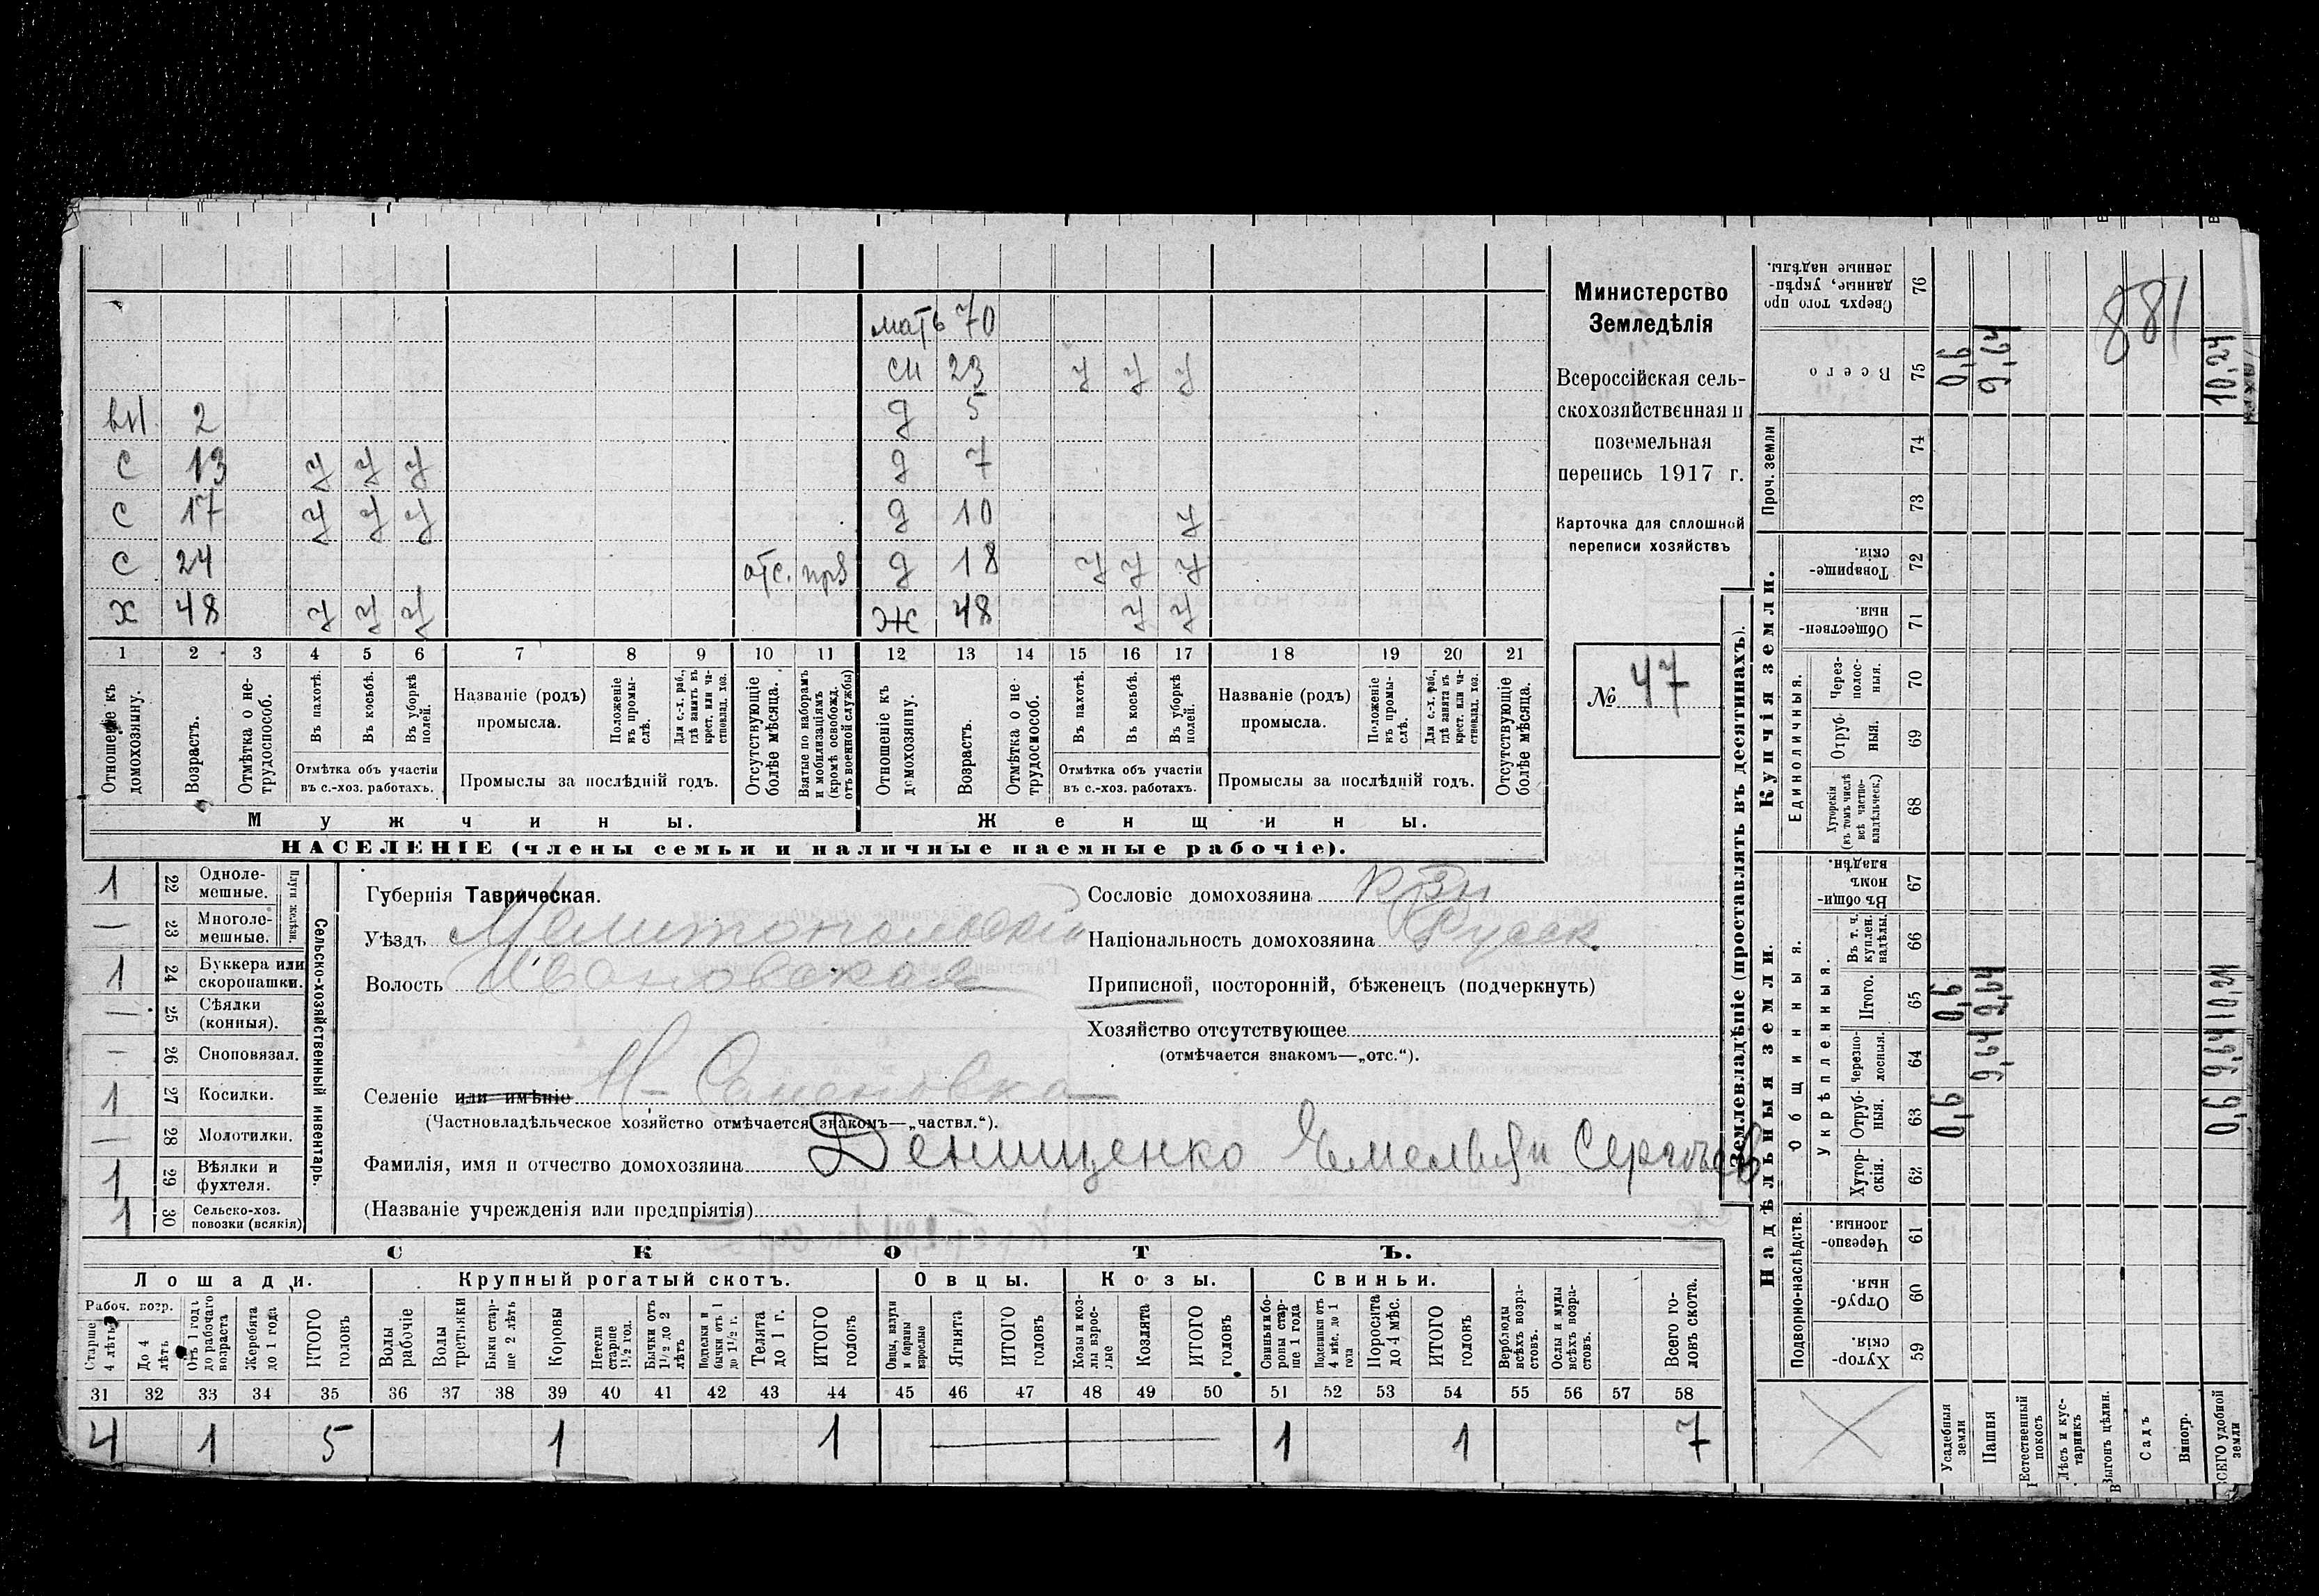 мать 70
сн 23 у у у
вн. 2 д 5
с 13 у у у д 7
с 17 у у у д 10 у
с 24 отс. прз д 18 у у у
х 48 у у у ж 48 у у
1 2 3 4 5 6 7 8 9 10 11 12 13 14 15 16 17 18 19 20 21
Отношеніе къ домохозяину.
Возрастъ.
Отмѣтка о не-
трудоспособ.
Въ пахотѣ.
Въ косьбѣ.
Въ уборкѣ
полей.
Отмѣтка объ участіи
въ с.-хоз. работахъ.
Названіе (родъ)
промысла.
Положеніе
въ промы-
слѣ.
Для с.-х. раб.,
гдѣ занятъ въ
крест. или ча-
стновлад. хоз.
Промыслы за послѣдній годъ.
Отсутствующіе
болѣе мѣсяца.
Взятые по наборамъ
и мобилизаціямъ
(кромѣ освобожд.
отъ военной службы)
Отношеніе къ
домохозяину.
Возрастъ.
Отмѣтка о не
трудоспособ.
Въ пахотѣ.
Въ косьбѣ.
Въ уборкѣ
полей.
Отмѣтка объ участіи
въ с.-хоз. работахъ.
Названіе (родъ)
промысла.
Положеніе
въ промы-
слѣ.
Для с.-х. раб.,
гдѣ занята въ
крест. или ча-
стновлад. хоз.
Промыслы за послѣдній годъ.
Отсутствующіе
болѣе мѣсяца.
Мужчины.
Женщины.
НАСЕЛЕНІЕ (члены семьи и наличные наемные рабочіе).
Министерство
Земледѣлія
Всероссійская сель-
скохозяйственная и
поземельная
перепись 1917 г.
Карточка для сплошной
переписи хозяйствъ
№ 47
1 22 Одноле-
мешные.
— 23 Многоле-
мешные.
Плуги желѣзн.
1 24 Буккера или
скоропашки.
— 25 Сѣялки
(конныя).
— 26 Сноповязал.
1 27 Косилки.
— 28 Молотилки.
1 29 Вѣялки и
фухтеля.
1 30 Сельско-хоз.
повозки (всякія)
Сельско-хозяйственный инвентарь.
Губернія Таврическая.
Уѣздъ Мелитопольскій
Волость Ивановская
Селеніе или имѣніе Н-Семеновка
(Частновладѣльческое хозяйство отмѣчается знакомъ—„частвл.“).
Фамилія, имя и отчество домохозяина Денищенко Емельян Сергѣев
(Названіе учрежденія или предпріятія)
Сословіе домохозяина крзн
Національность домохозяина Русск.
Приписной, посторонній, бѣженецъ (подчеркнуть)
Хозяйство отсутствующее
(отмѣчается знакомъ—„отс.“).
СКОТЪ.
Лошади. Крупный рогатый скотъ. Овцы. Козы. Свиньи.
Рабоч. возр.
Старше
4 лѣтъ
До 4
лѣтъ
Отъ 1 года
до рабочаго
возраста
Жеребята
до 1 года
ИТОГО
головъ
Волы
рабочіе
Волы
третьяки
Быки стар-
ше 2 лѣтъ
Коровы
Нетели
старше
1½ год.
Бычки отъ
1½ до 2
лѣтъ
Подтелки и
бычки отъ 1
до 1½ г.
Телята
до 1 г.
ИТОГО
головъ
Овцы, валухи
и бараны
взрослые
Ягнята
ИТОГО
головъ
Козы и коз-
лы взрос-
лые
Козлята
ИТОГО
головъ
Свиньи и бо-
ровы стар-
ше 1 года
Подсвинки отъ
4 мѣс. до 1
года
Поросята
до 4 мѣс.
ИТОГО
головъ
Верблюды
всѣхъ возра-
стовъ.
Ослы и мулы
всѣхъ возра-
стовъ.
Всего го-
ловъ скота.
31 32 33 34 35 36 37 38 39 40 41 42 43 44 45 46 47 48 49 50 51 52 53 54 55 56 57 58
4 1 5 1 1 1 1 7
Землевладѣніе (проставлять въ десятинахъ).
Надѣльныя земли.
Купчія земли.
Подворно-наслѣдств.
Общинныя.
Укрѣпленныя.
Единоличныя.
Проч. земли
Хутор-
скія. 59
Отруб-
ныя. 60
Черезпо-
лосныя. 61
Хутор-
скія. 62
Отруб-
ныя. 63
Черезпо-
лосныя. 64
Итого. 65
Въ т. ч.
куплен.
надѣлы. 66
Въ общин-
номъ
владѣн. 67
Хуторскія
(въ томъ числѣ
всѣ частно-
владѣльческ.) 68
Отруб-
ныя. 69
Через-
полос-
ныя. 70
Обществен-
ныя. 71
Товарище-
скія. 72
73
74
Всего 75
Сверхъ того про
данные, укрѣп-
ленные надѣлы. 76
Усадебныя
земли 0,6 0,6 0,6
Пашня 9,64 9,64 9,64
Естественный
покосъ
Лѣсъ и кус-
тарникъ
Выгонъ цѣлин.
Садъ
Виногр.
ВСЕГО удобной
земли 0,6 9,64 10,24 10,24
881